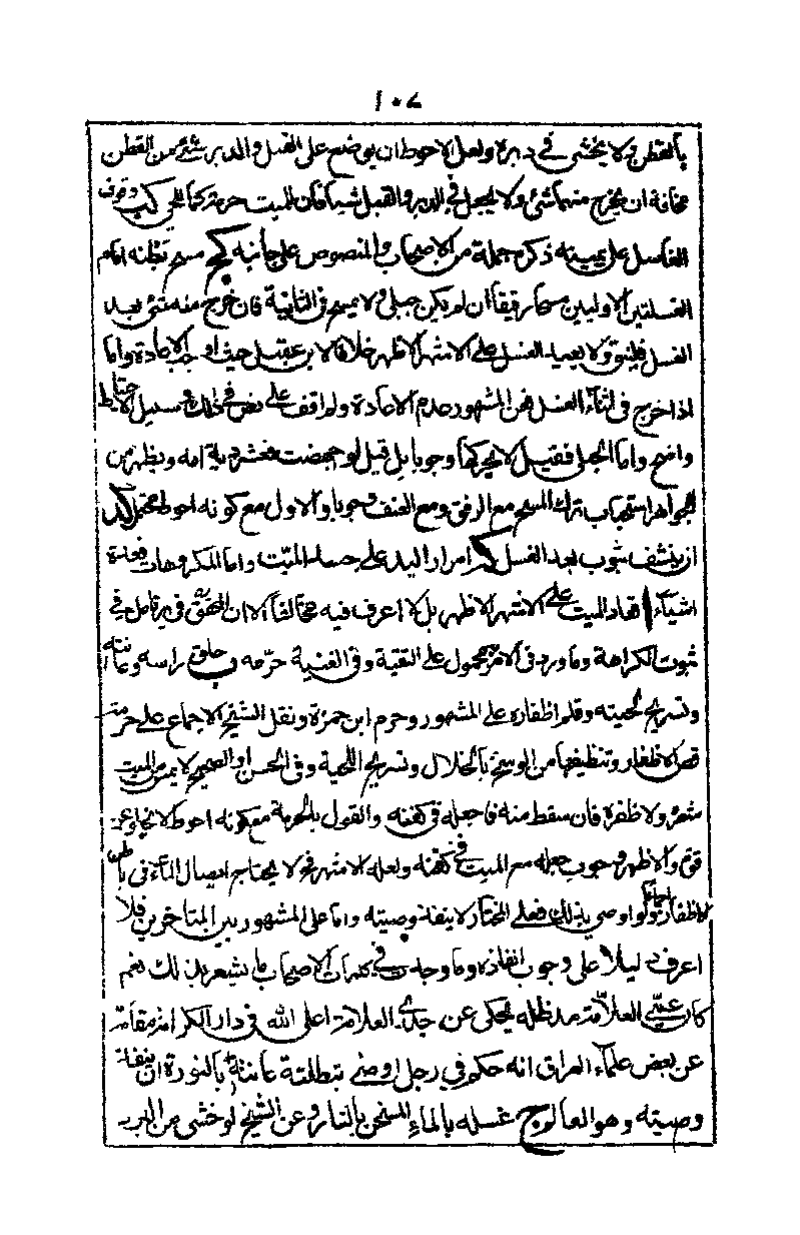 ١٠٧
بالقطن ولا يخشى في دبره ولعل الاحوط ان يوضع على القبل والدبر شئ من القطن
مخافة ان يخرج منهما شئ ولا يجعل في الدبر والقبل شيئا فان للميت حرمة كما للحي يب وقوف
الغاسل على يمينه ذكره جملة من الاصحاب والمنصوص على جانبه يج مسح بطنه امام
الغسلتين الاوليين مسحا رقيقا ان لم يكن حبلى ولا يمسح في الثانية فان خرج منه شئ بعد
الغسل فلينق ولا يعيد الغسل على الاشهر الاظهر خلافا لابن عقيل حيث اوجب الاعادة واما
اذا خرج في اثناء الغسل فمن المشهور عدم الاعادة ولم اقف على نص في ذلك وسبيل الاحتياط
واضح واما الحبلى فقيل لا يحركها وجوبا بل قيل لو جهضت فعشر دية امه ويظهر من
الجواهر استحباب ترك المسح مع الرفق ومع العنف وجوبا والاول مع كونه احوط محتمل يد
ان ينشف بثوب بعد الغسل يه امرار اليد على جسد الميت واما المكروهات فعدة
اشياء ا قعاد الميت على الاشهر الاظهر بل لا اعرف فيه مخالفا الا ان المحقق في بر تامل في
ثبوت الكراهة وما ورد في الامر محمول على التقية وفي الغنية حرمه ب حلق راسه وعانته
وتسريح لحيته وقلم اظفاره على المشهور وحرم ابن حمزة ونقل الشيخ الاجماع على حرمة
قص الاظفار وتنظيفها من الوسخ بالخلال وتسريح اللحية وفي الحسن او الصحيح لا يمس من الميت
شعر ولا ظفر فان سقط منه فاجعله في كفنه والقول بالحرمة مع كونه احوط لا يخلو عن
قوة والاظهر وجوب جعله مع الميت في كفنه ولعله الاشهر فلا يحتاج ايصال الماء في باطن
الاظفار اجماعا ولو اوصي بذلك فعلى المختار لا ينفذ وصيته واما على المشهور بين المتاخرين فلا
اعرف دليلا على وجوب انفاذه وما وجدت في كلمات الاصحاب ما يشعر بذلك نعم
كان عمي العلامة مد ظله يحكي عن جدي العلامة اعلى الله في دار الكرامة مقامه
عن بعض علماء العراق انه حكم في رجل اوصى بتطلية عانته بالنورة ان ينفذ
وصيته وهو العالم ج غسله بالماء المسخن بالنار وعن الشيخ لو خشى من البرد